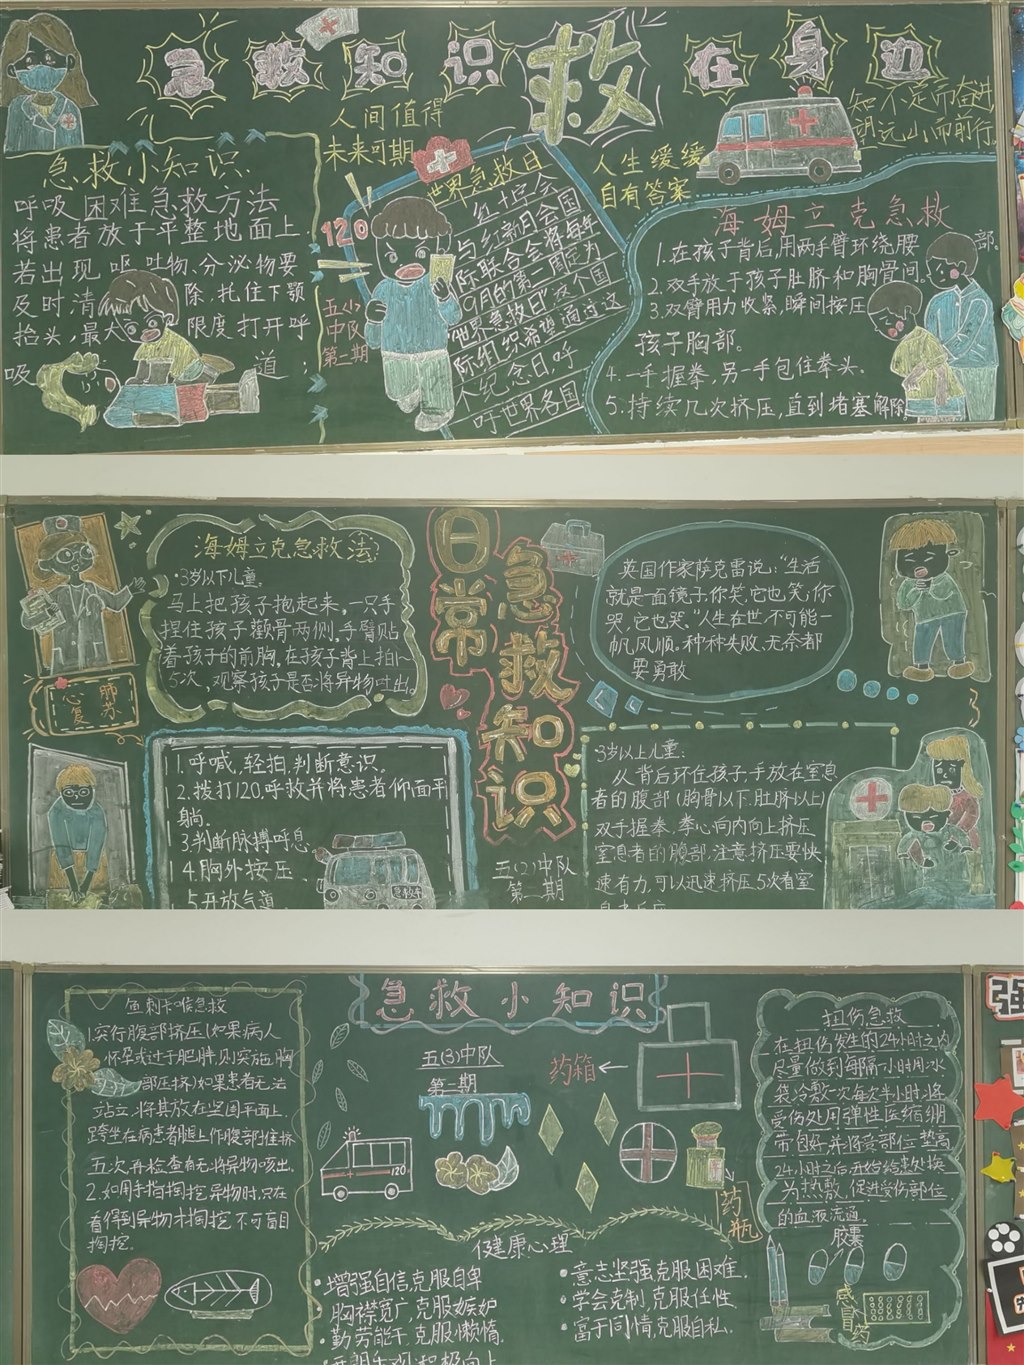 急救知识救在身边
人间值得
未来可期
人生缓缓
自有答案
知不足而奋进
望远山而前行
急救小知识
呼吸困难急救方法
将患者放于平整地面上.
若出现呕吐物、分泌物要
及时清除.托住下颚
抬头,最大限度打开呼
吸道;
120
五(1)
中队
第二期
世界急救日
红十字会
与红新月会国
际联合会将每年
9月的第二周定为
"世界急救日"这个国
际组织希望通过这
个纪念日,呼
吁世界各国
海姆立克急救
1.在孩子背后,用两手臂环绕腰部.
2.双手放于孩子肚脐和胸骨间.
3.双臂用力收紧,瞬间按压
孩子胸部。
4.一手握拳,另一手包住拳头.
5.持续几次挤压,直到堵塞解除
日常急救知识
海姆立克急救法
·3岁以下儿童。
马上把孩子抱起来,一只手
捏住孩子颧骨两侧,手臂贴
着孩子的前胸.在孩子背上拍1~
5次,观察孩子是否将异物吐出。
心肺
复苏
1.呼喊,轻拍,判断意识.
2.拨打120,呼救并将患者仰面平
躺.
3.判断脉搏呼息
4.胸外按压
5.开放气道
急救车
五(2)中队
第二期
英国作家萨克雷说:"生活
就是一面镜子,你笑,它也笑,你
哭,它也哭."人生在世,不可能一
帆风顺.种种失败、无奈都
要勇敢
3岁以上儿童:
从背后环住孩子,手放在窒息
者的腹部(胸骨以下.肚脐以上)
双手握拳,拳心向内向上挤压
窒息者的腹部,注意挤压要快
速有力,可以迅速挤压5次看窒
急救小知识
五(3)中队
第二期
药箱
鱼刺卡喉急救
1.实行腹部挤压(如果病人
怀孕或过于肥胖则实施胸
部压挤)如果患者无法
站立,将其放在坚固平面上
跨坐在病患者腿上作腹部推挤
五次,再检查有无将异物咳出.
2.如用手指掏挖异物时,只在
看得到异物才掏挖,不可盲目
掏挖.
120
药瓶
扭伤急救
在扭伤发生的24小时之内
尽量做到每隔一小时用冰
袋冷敷一次每次半小时,将
受伤处用弹性压缩绷
带包好,并将受伤部位垫高
24小时之后,开始给患处换
为热敷,促进受伤部位
的血液流通。
胶囊
感冒药
健康心理
·增强自信,克服自卑
·胸襟宽广,克服嫉妒
·勤劳能干,克服懒惰.
·意志坚强,克服困难.
·学会克制,克服任性.
·富于同情,克服自私.
强